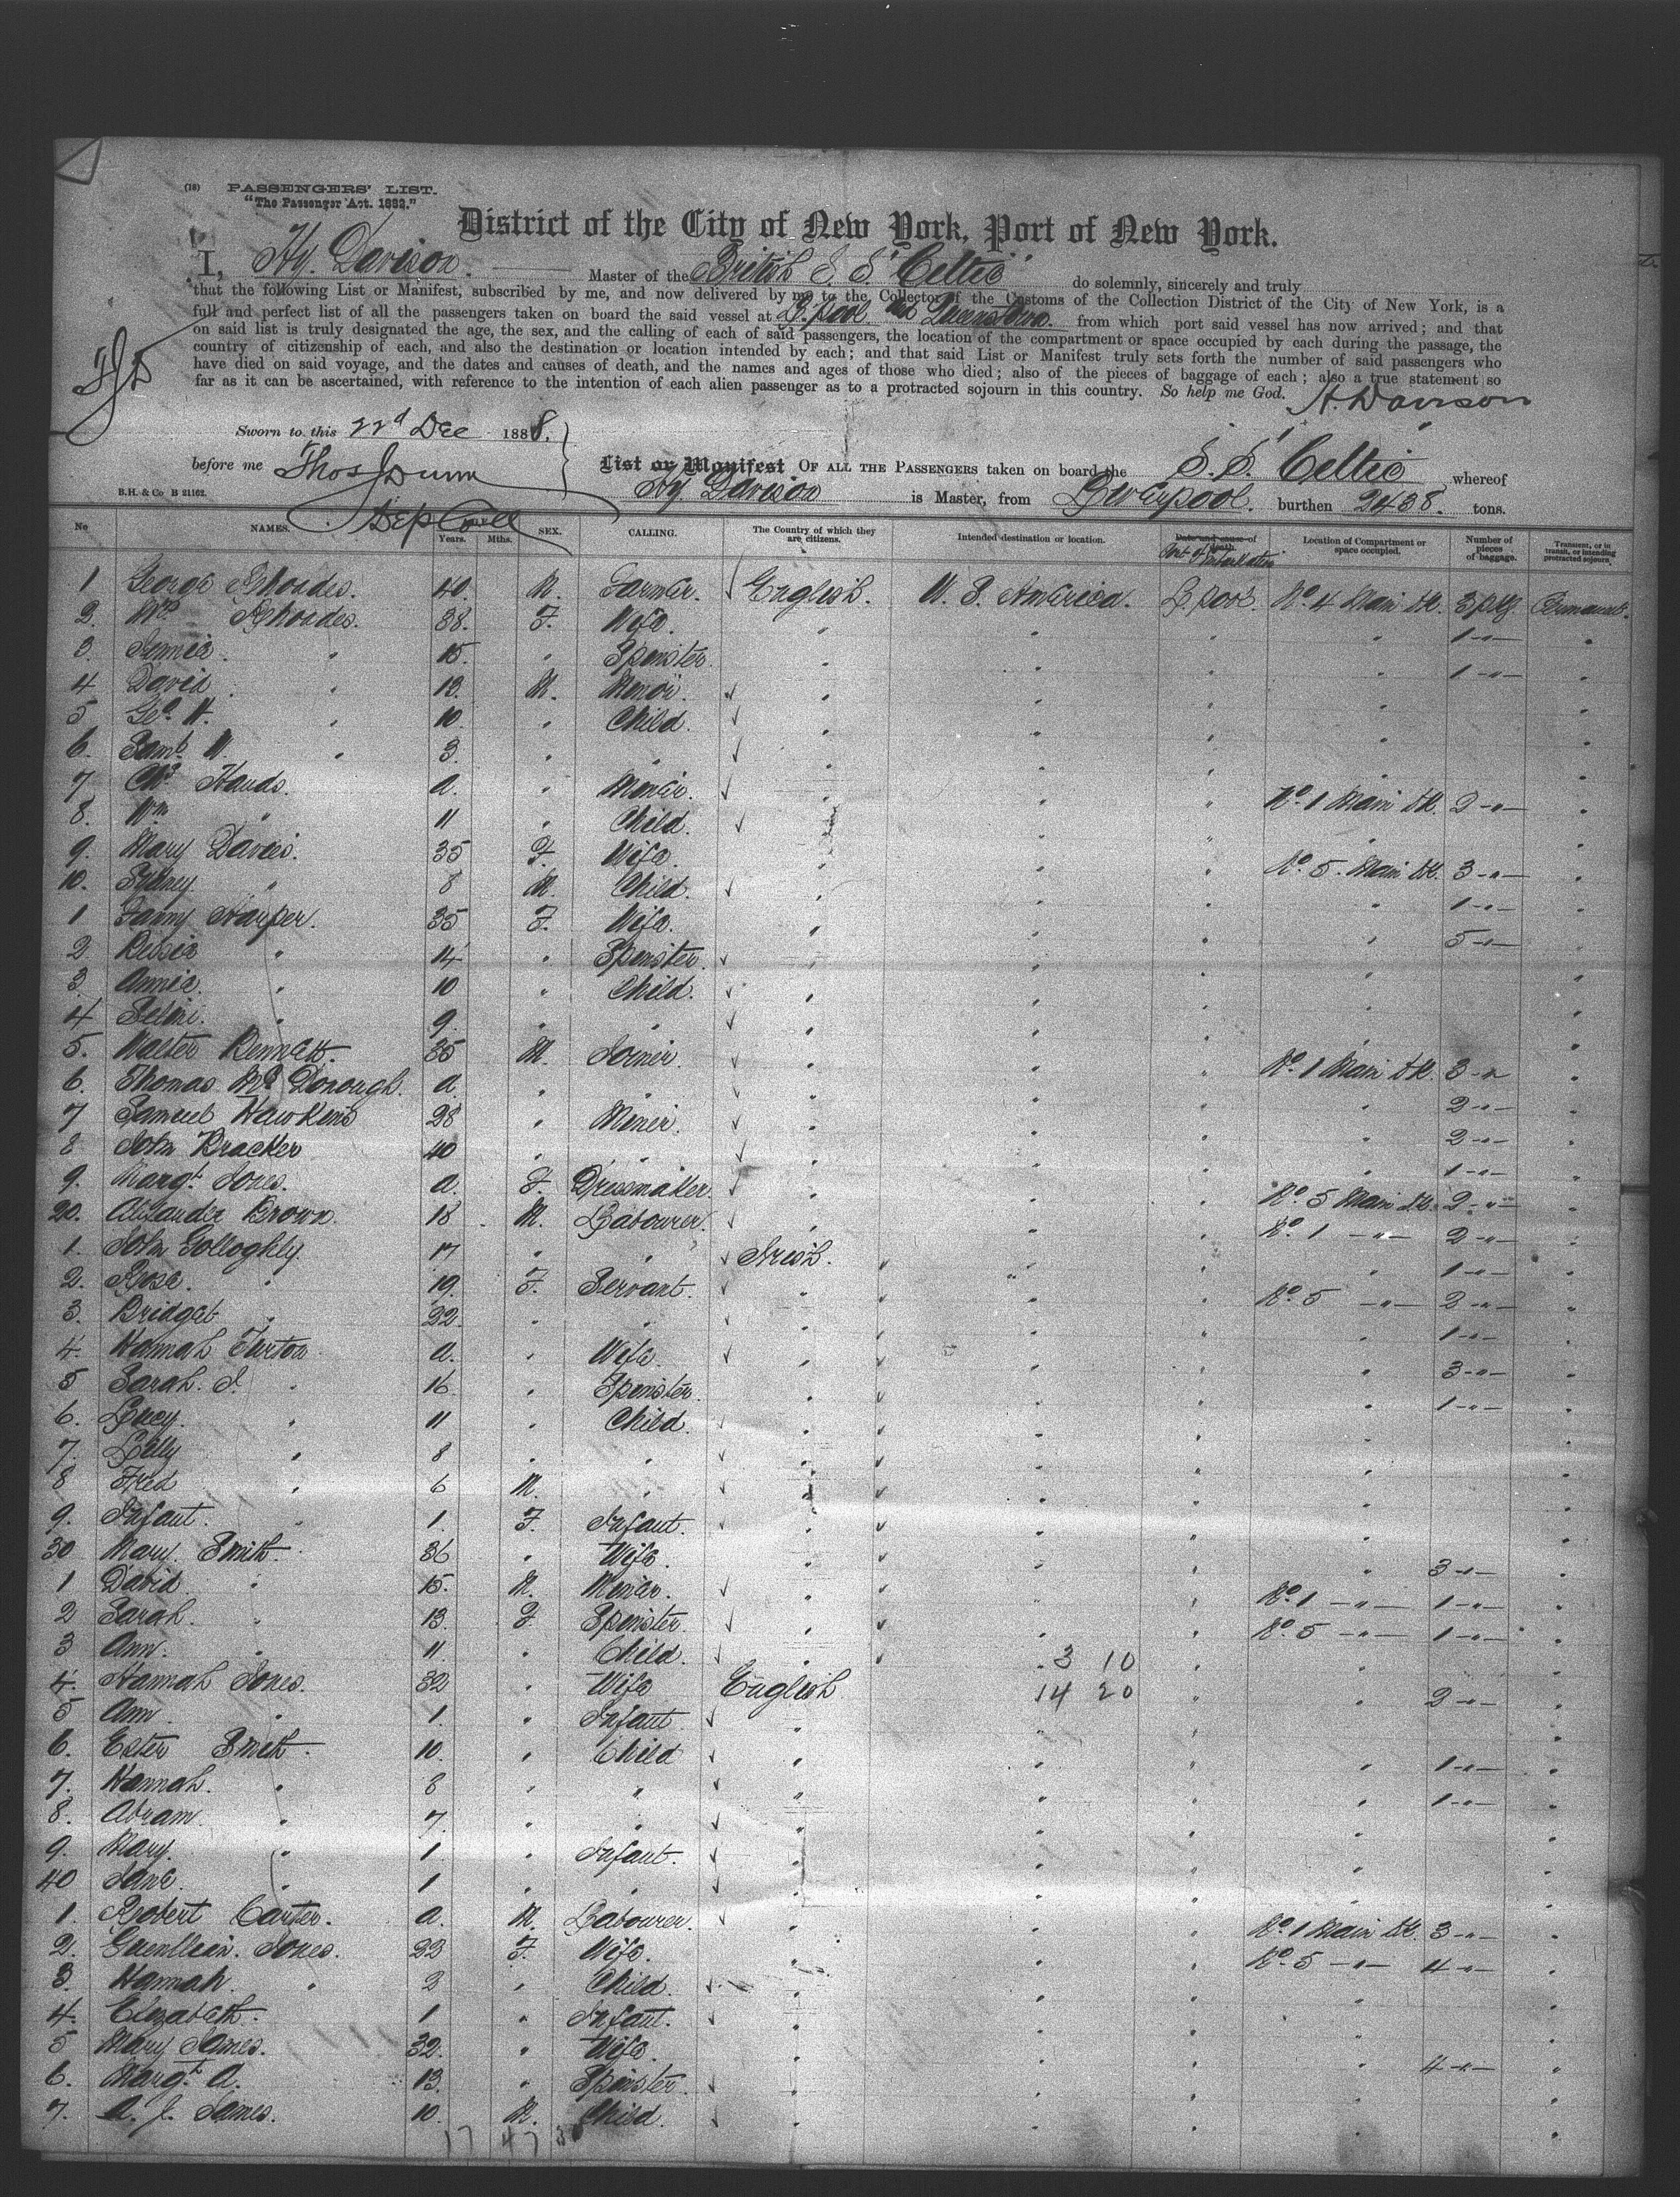 (18) PASSENGERS' LIST.
"The Passenger Act. 1882."
District of the City of New York, Port of New York.
I, Hy. Davison. Master of the British S. S. "Celtic" do solemnly, sincerely and truly
that the following List or Manifest, subscribed by me, and now delivered by me to the Collector of the Customs of the Collection District of the City of New York, is a
full and perfect list of all the passengers taken on board the said vessel at L'pool and Queenstown. from which port said vessel has now arrived; and that
on said list is truly designated the age, the sex, and the calling of each of said passengers, the location of the compartment or space occupied by each during the passage, the
country of citizenship of each, and also the destination or location intended by each; and that said List or Manifest truly sets forth the number of said passengers who
have died on said voyage, and the dates and causes of death, and the names and ages of those who died; also of the pieces of baggage of each; also a true statement so
far as it can be ascertained, with reference to the intention of each alien passenger as to a protracted sojourn in this country. So help me God. H. Davison
Sworn to this 22d Dec 1888.
before me Thos Dunn
Dep Coll
List or Manifest OF ALL THE PASSENGERS taken on board the S. S. "Celtic" whereof
Hy Davison is Master, from Liverpool. burthen 2438. tons.
B.H. & Co B 21162.
No NAMES. Years. Mths. SEX. CALLING. The Country of which they are citizens. Intended destination or location. Date and cause of death. Port of Embarkation Location of Compartment or space occupied. Number of pieces of baggage. Transient, or in transit, or intending protracted sojourn.
1 George Rhoades. 40. M. Farmer. English. U. S. America. L'pool. No. 4 Main dk. 3 pkg. Permanent.
2. Mrs Rhoades. 38. F. Wife. " " " " 1 -"- "
3. " 15. " Spinster. " " " " 1 -"- "
4 David " 12. M. " " " " "
5 Geo. H. " 10. " Child. " " " " "
6. Saml. W. " 3. " " " " " " "
7 Hands. a. " " " " No. 1 Main dk. 2 -"- "
8. Wm " 11 " Child. " " " " "
9. Mary Davies. 35 F. Wife. " " " No. 5. Main dk. 3 -"- "
10. Sydney " 8 M. Child. " " " " 1 -"- "
1 Fanny Harper. 35 F. Wife. " " " " 5 -"-
2. Bessie " 14 " Spinster. " " " " "
3. Annie. " 10 " Child. " " " " "
4 " 9. " " " " " " "
5. Walter Bennett. 35 M. Joiner. " " " No. 1 Main dk. 3 -"- "
6. Thomas McDonough. a. " " " " " " 2 -"- "
7 Samuel Hawkins 28 " Miner. " " " " 2 -"- "
8 John Bracker 40 " " " " " " 1 -"- "
9. Margt. Jones. a. F. Dressmaker. " " " No. 5 Main dk. 2 -"- "
20. Alexander Brown. 18 M. Labourer. " " " No. 1 -"- 2 -"- "
1. John Golloghly. 17 " " Irish. " " " 1 -"- "
2. Rose. " 19. F. Servant. " " " No. 5 -"- 2 -"- "
3. Bridget " 22. " " " " " " 1 -"- "
4. Hannah Turton. a. " Wife. " " " " 3 -"- "
5 Sarah. J. " 16 " Spinster. " " " " 1 -"- "
6. Lucy. " 11 " Child. " " " " "
7. Lilly " 8 " " " " " " "
8 Fred " 6 M. " " " " " "
9. Infant. " 1. F. Infant. " " " " "
30 Mary. Smith. 36 " Wife. " " " " 3 -"- "
1 David. " 15. M. " " " No. 1 -"- 1 -"- "
2 Sarah. " 13. F. Spinster. " " " No. 5 -"- 1 -"- "
3 Ann. " 11. " Child. " 3 10 " " "
4. Hannah Jones. 32 " Wife English 14 20 " " 2 -"- "
5 Ann. " 1. " Infant " " " " "
6. Ester Smith. 10. " Child " " " " 1 -"- "
7. Hannah. " 8 " " " " " " 1 -"- "
8. Abram. " 7. " " " " " " "
9. Mary. " 1 " Infant. " " " " "
40 Jane. " 1 " " " " " " "
1. Robert Carter. a. M. Labourer. " " " No. 1 Main dk. 3 -"- "
2. Jones. 23 F. Wife. " " " No. 5 -"- 4 -"- "
3 Hannah. " 2 " Child. " " " " "
4. Elizabeth. " 1 " Infant. " " " " "
5 Mary James. 32. " Wife. " " " " 4 -"- "
6. Margt. A. 13. " Spinster. " " " " "
7. A. J. James. 10. M. Child. " " " " "
17 47 3